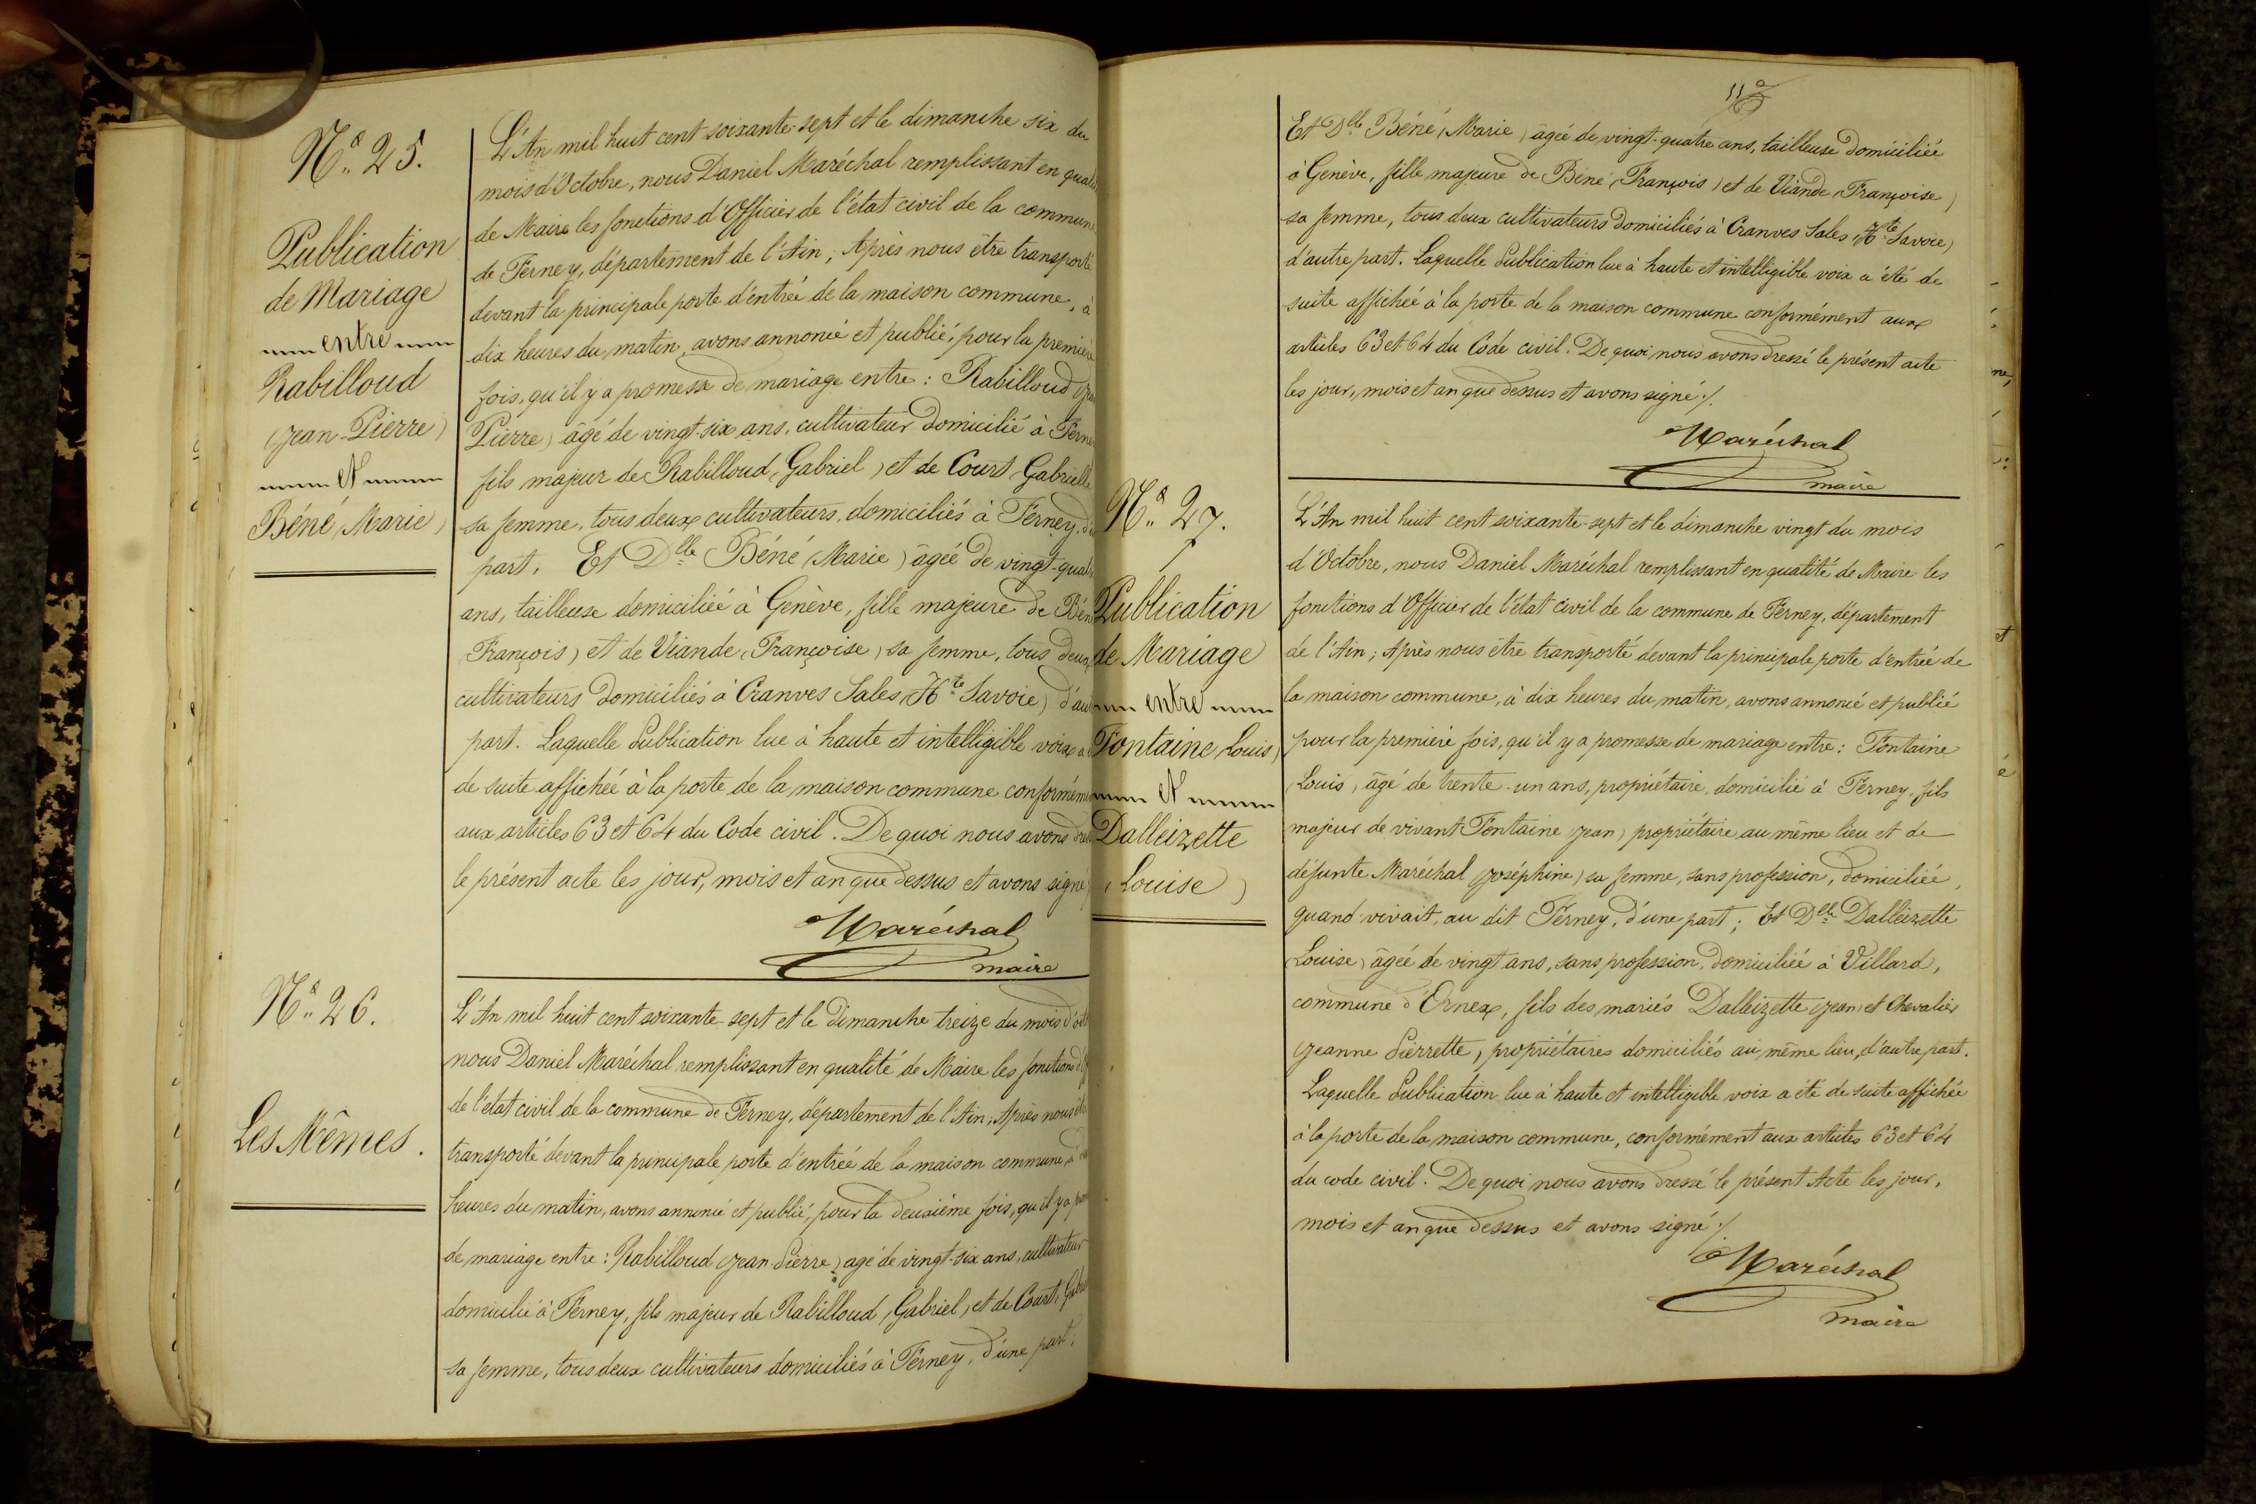 Nº 25.
Publication
de Mariage
entre
Rabilloud
(Jean-Pierre)
Et
Béné (Marie)
L'An mil huit cent soixante-sept et le dimanche six du
mois d'Octobre, nous Daniel Maréchal remplissant en
de Maire les fonctions d'Officier de l'état civil de la commune
de Ferney, département de l'Ain; Après nous être transporté
devant la principale porte d'entrée de la maison commune, à
dix heures du matin, avons annoncé et publié, pour la première
fois, qu'il y a promesse de mariage entre: Rabilloud
Pierre) âgé de vingt-six ans, cultivateur domicilié à
fils majeur de Rabilloud (Gabriel) et de Court (Gabrielle
sa femme, tous deux cultivateurs, domiciliés à Ferney,
part. Et Dlle Béné (Marie) âgée de vingt-
ans, tailleuse domiciliée à Genève, fille majeure de
(François) et de Viande (Françoise) sa femme, tous deux
cultivateurs domiciliés à Cranves Sales (Hte Savoie)
part. Laquelle Publication lue à haute et intelligible voix a
de suite affichée à la porte de la maison commune
aux articles 63 et 64 du Code civil. De quoi nous avons
le présent acte les jour, mois et an que dessus et avons signé
Maréchal
maire
Nº 26.
Les Mêmes.
L'An mil huit cent soixante-sept et le dimanche treize du mois
nous Daniel Maréchal remplissant en qualité de Maire les fonctions
de l'état civil de la commune de Ferney, département de l'Ain; Après nous
transporté devant la principale porte d'entrée de la maison commune, à
heures du matin, avons annoncé et publié, pour la deuxième fois, qu'il y a
de mariage entre: Rabilloud (Jean-Pierre) âgé de vingt-six ans, cultivateur
domicilié à Ferney, fils majeur de Rabilloud (Gabriel) et de Court,
sa femme, tous deux cultivateurs domiciliés à Ferney, d'une part.
Et Dlle Béné (Marie) âgée de vingt-quatre ans, tailleuse domiciliée
à Genève, fille majeure de Béné (François) et de Viande (Françoise)
sa femme, tous deux cultivateurs domiciliés à Cranves Sales (Hte Savoie)
d'autre part. Laquelle Publication lue à haute et intelligible voix a été de
suite affichée à la porte de la maison commune conformément aux
articles 63 et 64 du Code civil. De quoi nous avons dressé le présent acte
les jour, mois et an que dessus et avons signé ./.
Maréchal
maire
Nº 27.
Publication
de Mariage
entre
Fontaine (Louis)
Et
Dalleizette
(Louise)
L'An mil huit cent soixante-sept et le dimanche vingt du mois
d'Octobre, nous Daniel Maréchal remplissant en qualité de Maire les
fonctions d'Officier de l'état civil de la commune de Ferney, département
de l'Ain; Après nous être transporté devant la principale porte d'entrée de
la maison commune, à dix heures du matin, avons annoncé et publié
pour la première fois, qu'il y a promesse de mariage entre: Fontaine
(Louis, âgé de trente-un ans, propriétaire, domicilié à Ferney, fils
majeur de vivant Fontaine (Jean) propriétaire au même lieu et de
défunte Maréchal (Joséphine) sa femme, sans profession, domiciliée,
quand vivait, au dit Ferney, d'une part; Et Dlle Dalleizette
(Louise) âgée de vingt ans, sans profession, domiciliée à Villard,
commune d'Ornex, fils des mariés Dalleizette (Jean) et Chevalier
(Jeanne Pierrette) propriétaires domiciliés au même lieu, d'autre part.
Laquelle Publication lue à haute et intelligible voix a été de suite affichée
à la porte de la maison commune, conformément aux articles 63 et 64
du code civil. De quoi nous avons dressé le présent Acte les jour,
mois et an que dessus et avons signé ./.
Maréchal
maire